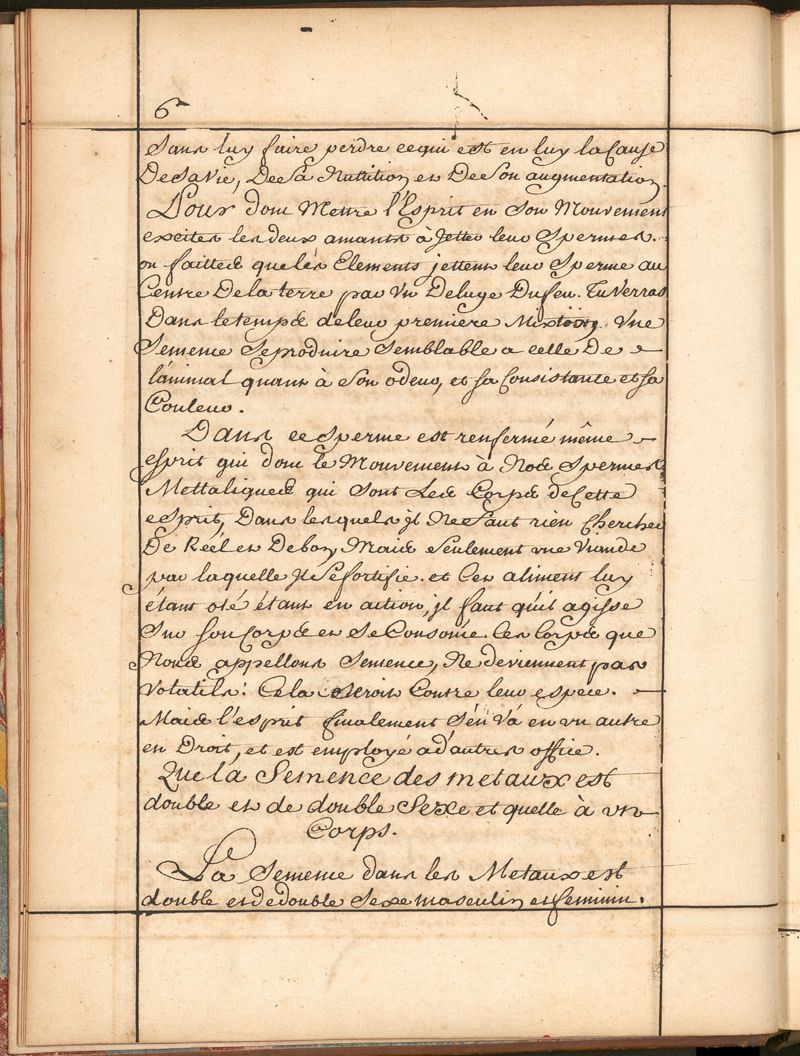 6
sans luy faire perdre ce qui est en luy la Cause
De sa Vie, De sa Nutrition et De son augmentation.
Pour donc Mettre l'Esprit en son Mouvement
exciter les deux amants à Jetter leur Spermes.
ou faittes que les Elements jettent leur Sperme au
Centre De la terre par Un Deluge Du feu. Tu Verras
Dans le temps de leur premiere Mixtion, Une
Semence Se produire Semblable a celle De
l'animal quant à son odeur, et sa Consistante et sa
Couleur.
Dans ce Sperme est renfermé même
esprit qui donc le Mouvement à Nos Spermes
Mettaliques qui sont Les Corps de Cette
esprit, Dans lesquels jl Ne faut rien Chercher
De Réel et De bon, Mais seulement une Viande
par laquelle Jl Se fortifie. et Cet aliment luy
étant oté étant en action, jl faut qu'il agisse
Sur son Corps et Se Consome. Ces Corps que
Nous appellons Semence, Ne deviennent pas
Volatils: Cela seroit Contre leur espece.
Mais l'esprit finalement s'én Vá en un autre
en Droit, et est employé a d'autres office.
Que la Semence des metaux est
double et de double Sexe et quelle à un
Corps.
La Semence dans les Metaux est
double et de double Sexe masculin et feminin.